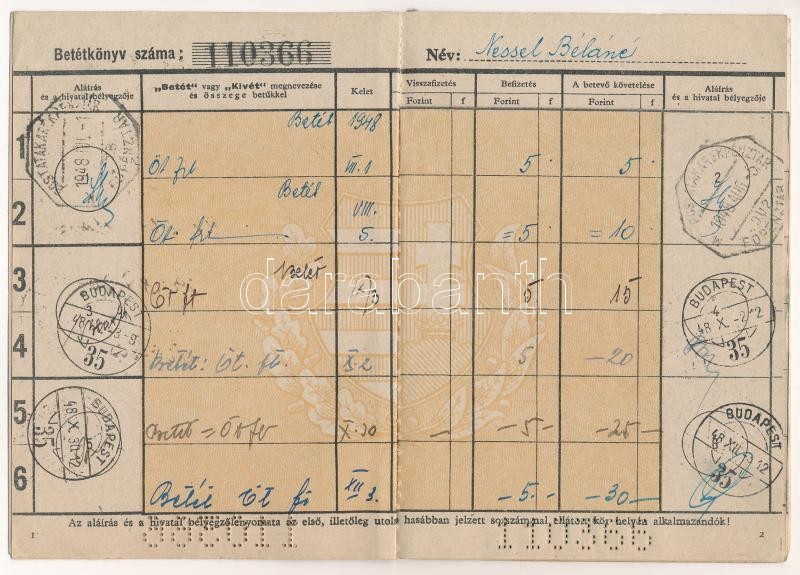 Betétkönyv száma: 110366
Név: Nessel Béláné
Aláírás és a hivatal bélyegzője
„Betét" vagy „Kivét" megnevezése és összege betűkkel
Kelet
Visszafizetés
Forint f
Befizetés
Forint f
A betevő követelése
Forint f
Aláírás és a hivatal bélyegzője
1
Betét 1948
Öt frt VII. 1 5 5
2
Betét VIII.
Öt frt 5. =5 =10
3
Betét
Öt ft 5 15
BUDAPEST
35
4
Betét: Öt ft. X. 2 5 -20
BUDAPEST
48 X. -2 12
35
5
Betét = Öt ft X. 30 - -5- -25-
BUDAPEST
48 X. 30 12
35
6
Betét Öt ft XII 3. -5- -30-
BUDAPEST
35
darabanth
Az aláírás és a hivatal bélyegzőlenyomata az első, illetőleg utolsó hasábban jelzett sorszámmal ellátott kör helyén alkalmazandók!
1 2
110366
110366